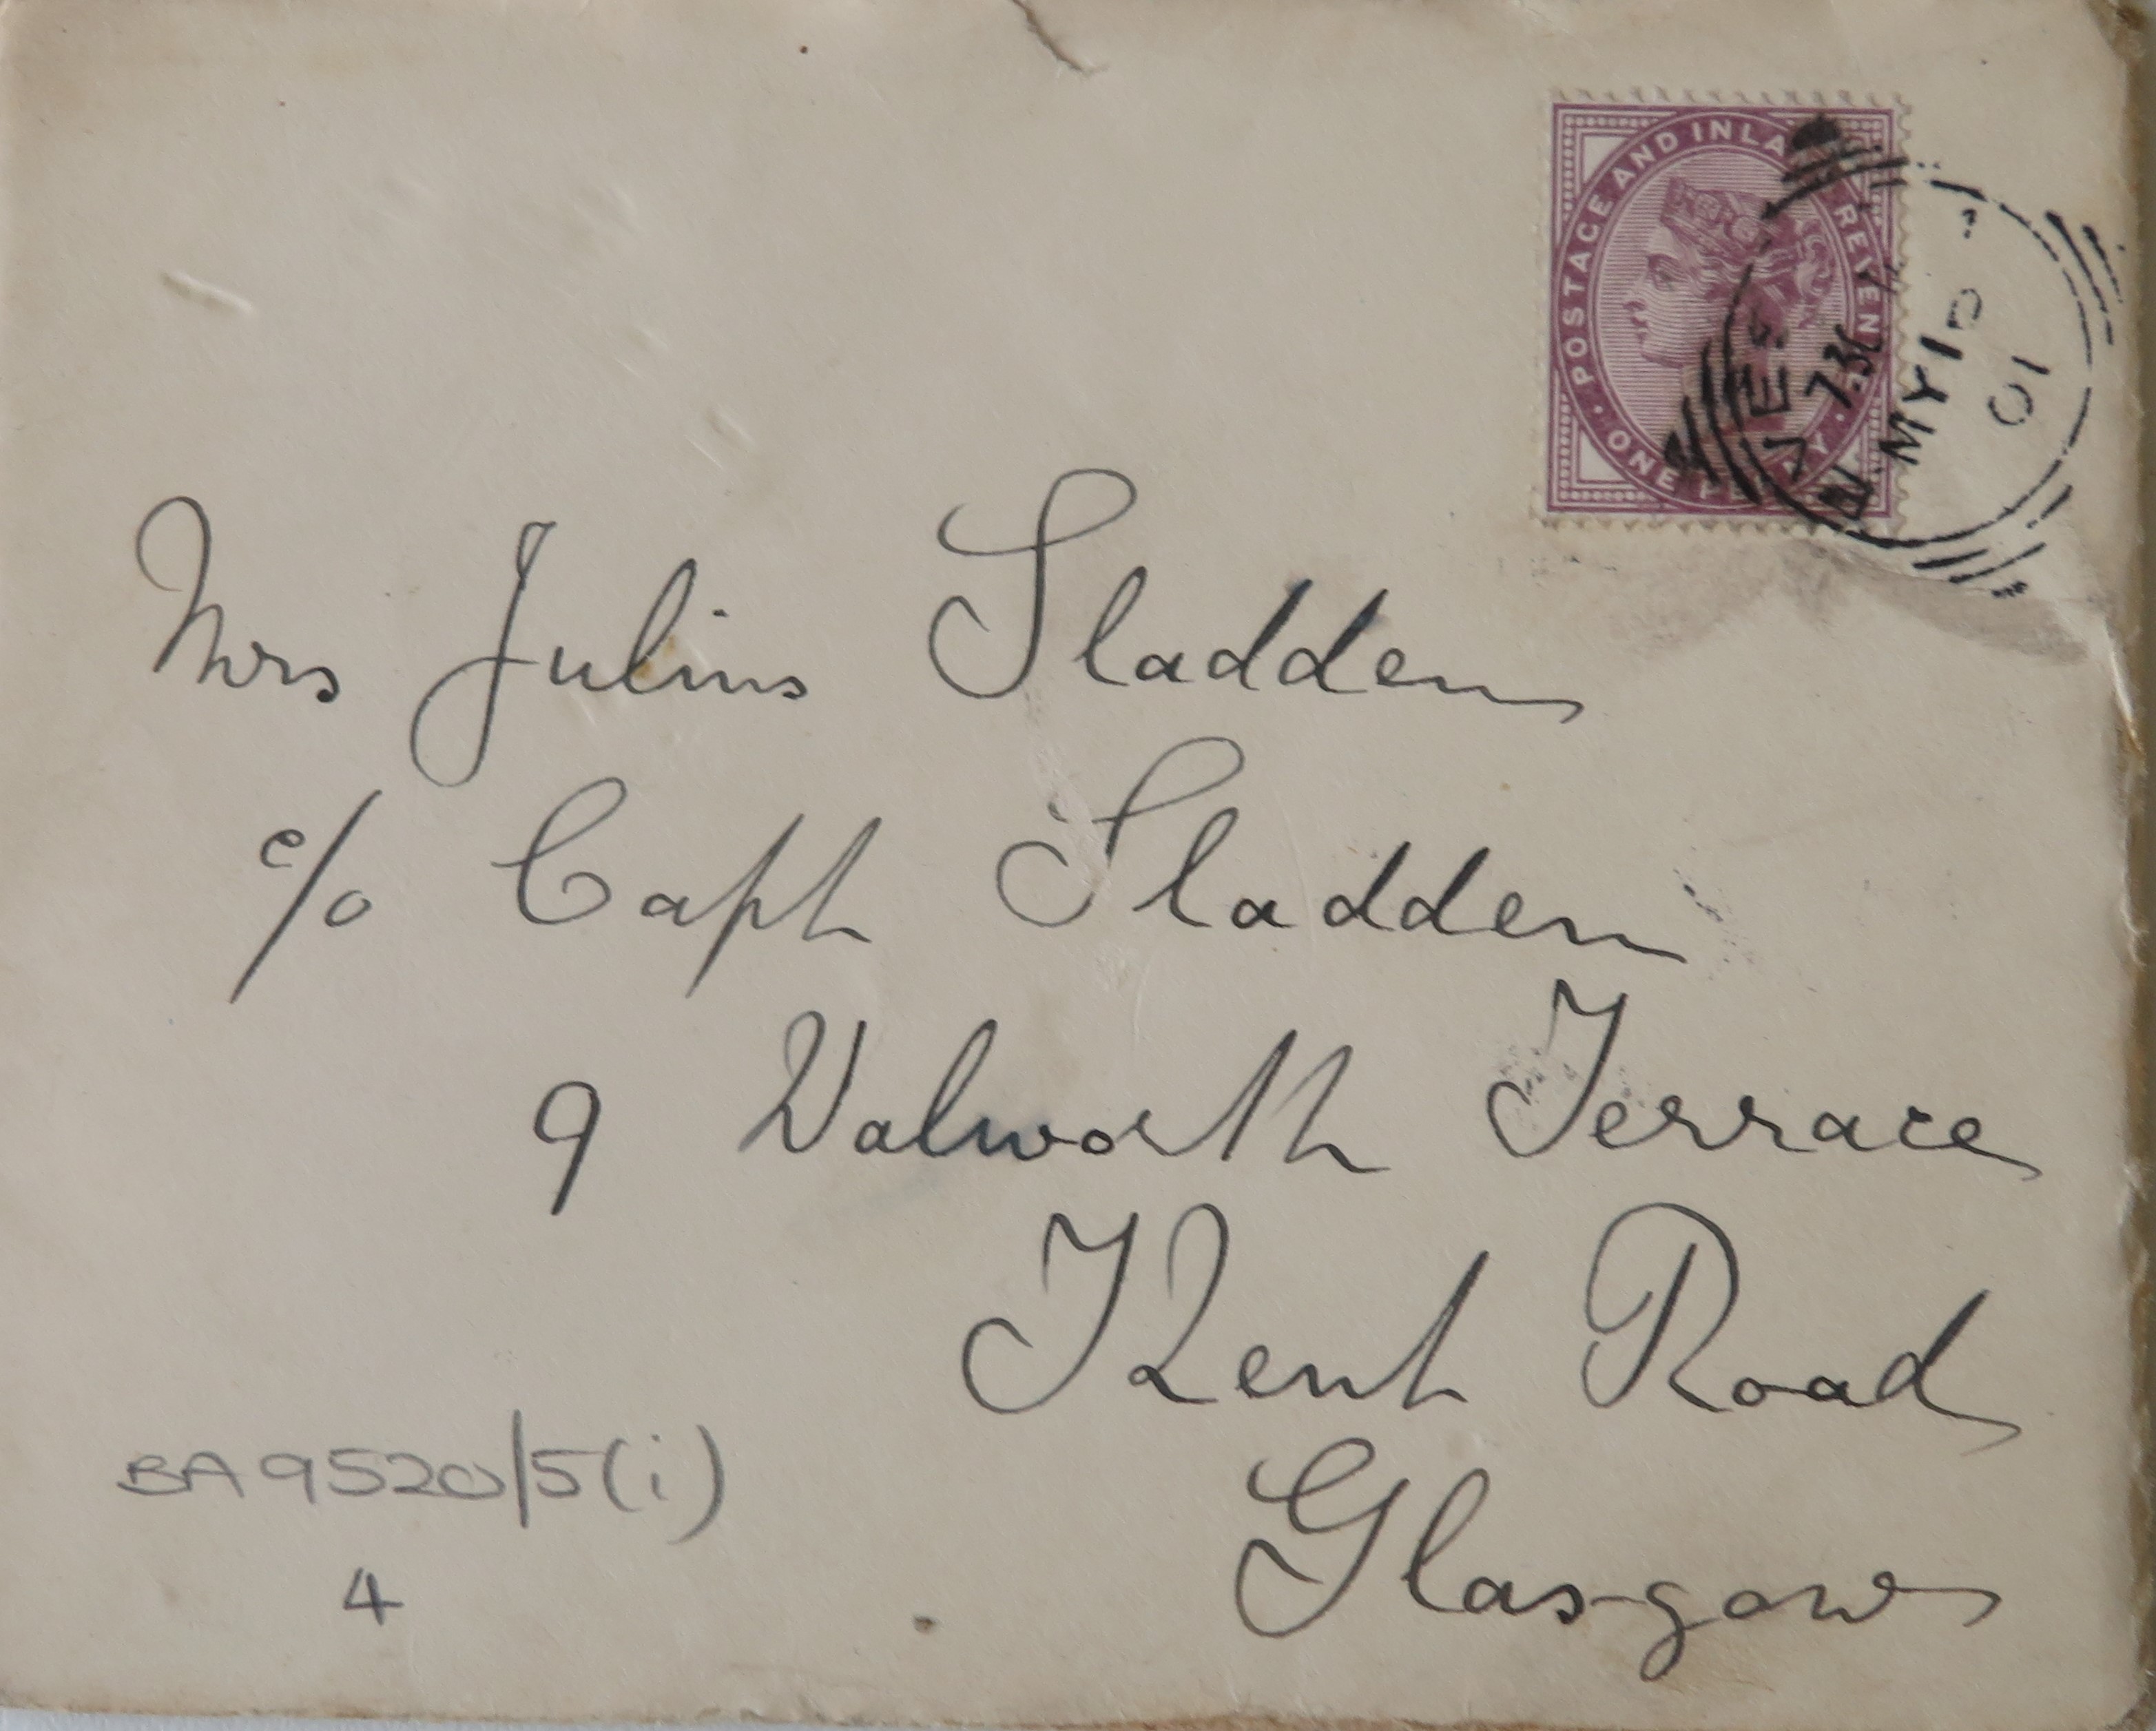 POSTAGE AND INLA REVEN
ONE PENNY
7 30
MY 1
01
Mrs Julius Sladden
c/o Capt Sladden
9 Walworth Terrace
Kent Road
Glasgow
BA9520/5(i)
4